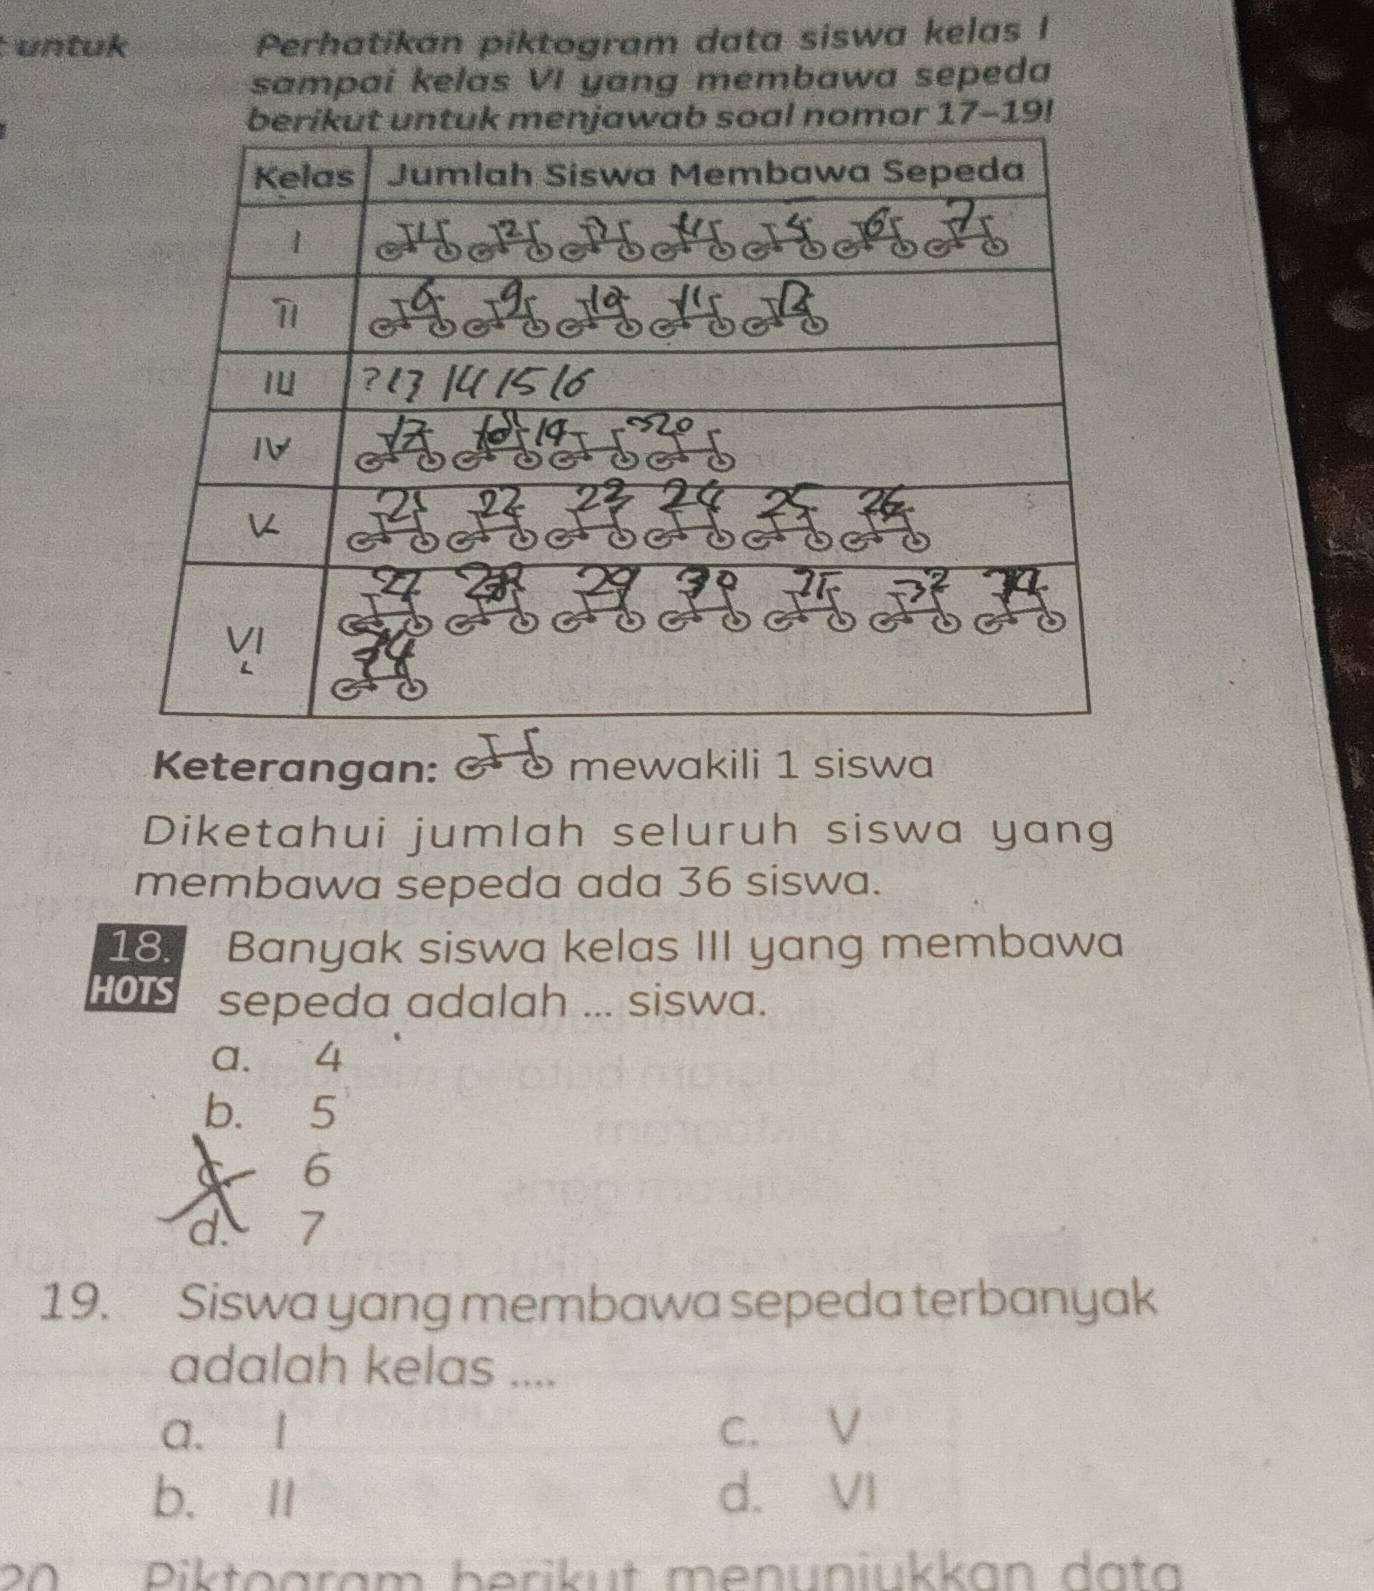 untuk
Perhatikan piktogram data siswa kelas I
sampai kelas VI yang membawa sepeda
berikut untuk menjawab soal nomor 17-19!
Kelas Jumlah Siswa Membawa Sepeda
I 1 2 3 4 5 6 7
II 9 10 11 12
III ? 13 14 15 16
IV 17 18 19 20
V 21 22 23 24 25 26
VI 27 28 29 30 31 32
34
Keterangan: mewakili 1 siswa
Diketahui jumlah seluruh siswa yang
membawa sepeda ada 36 siswa.
18. Banyak siswa kelas III yang membawa
HOTS sepeda adalah ... siswa.
a. 4
b. 5
c. 6
d. 7
19. Siswa yang membawa sepeda terbanyak
adalah kelas ....
a. I c. V
b. II d. VI
20 Piktogram berikut menunjukkan data